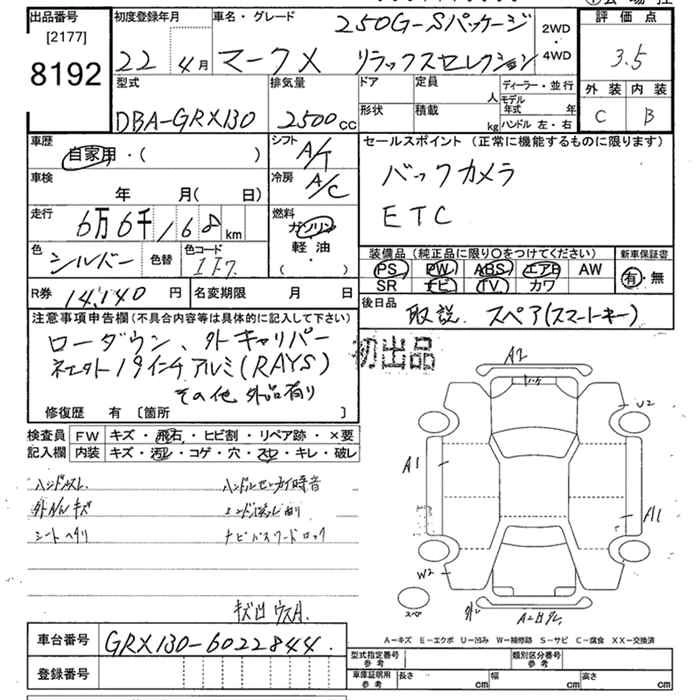 出品番号
[2177]
8192
初度登録年月
22 4月
車名・グレード
250G-Sパッケージ
マークX リラックスセレクション
2WD
・
4WD
評価点
3.5
外装 内装
C B
型式
DBA-GRX130
排気量
2500cc
ドア 定員 人
形状 積載 kg
ディーラー・並行
モデル年式 年
ハンドル 左・右
車歴
自家用・( )
シフト
A/T
車検
年 月( 日)
冷房
A/C
走行
6万6千168km
燃料
ガソリン
軽油・
( )
色
シルバー
色替
色コード
1F7
R券 14,140円
名変期限 月 日
セールスポイント(正常に機能するものに限ります)
バックカメラ
ETC
装備品(純正品に限り○をつけてください)
PS PW ABS エアB AW
SR ナビ TV カワ
新車保証書
有・無
後日品
取説. スペア(スマートキー)
注意事項申告欄(不具合内容等は具体的に記入して下さい)
ローダウン、外キャリパー
社外19インチアルミ(RAYS)
その他 外品有り
修復歴 有 〔箇所 〕
初出品
検査員
記入欄
FW キズ・飛石・ヒビ割・リペア跡・×要
内装 キズ・汚レ・コゲ・穴・スレ・キレ・破レ
ハンドルスレ
ハンドルセンターカイ時音
外AWキズ
シートヘタリ
ナビパスワードロック
A2
U2
A1
A1
W2
スペア
A-キズ E-エクボ U-凹み W-補修跡 S-サビ C-腐食 XX-交換済
車台番号
GRX130-6022844
登録番号
型式指定番号
参考
類別区分番号
参考
車庫証明用
参考
長さ cm 幅 cm 高さ cm